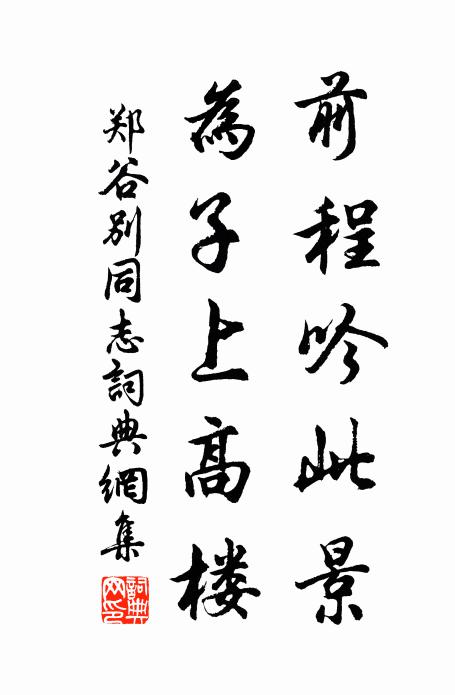 前程吟此景
為子上高楼
郑谷别同志詞典網集
詞典網印